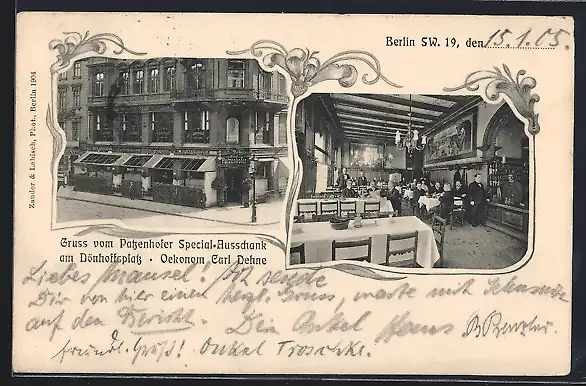 Berlin SW. 19, den 15.1.05.
Zander & Labisch, Phot., Berlin 1904
Patzenhofer
Gruss vom Patzenhofer Special-Ausschank
am Dönhoffsplatz · Oekonom Carl Dehne
Liebes Mausel! sende
Dir von hier einen herzl. Gruss, warte mit Sehnsucht
auf den Bericht. Dein Onkel Hans
freundl. Gruß! Onkel Troschke.